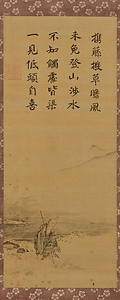 携藤撥草瞻風
未免登山涉水
不知觸處皆渠
一見低頭自喜